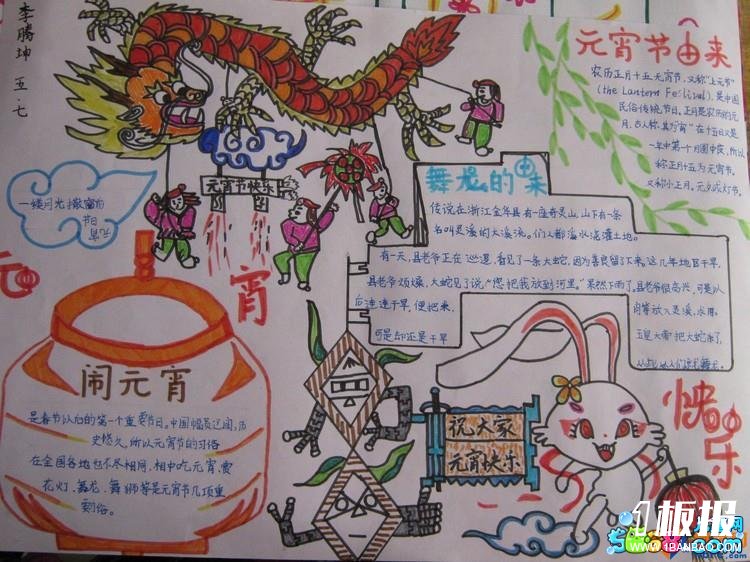 李腾坤 五.七
元宵节由来
农历正月十五元宵节,又称"上元节"
(the Lantern Festival),是中国
民俗传统节日。正月是农历的元
月,古人称其为"宵"在十五日又是
一年中第一个月圆中夜,所以
称正月十五为元宵节。
又称小正月、元夕或灯节。
元宵节快乐
舞龙的由来
传说在浙江金华县有一座奇灵山,山下有一条
名叫灵溪的大溪流。们人都溪水浇灌土地。
有一天,县老爷正在巡逻,看见了一条大蛇,因为善良留了下来。这几年地区干旱,
县老爷烦燥,大蛇见了说:"您把我放到河里。"果然下雨了。县老爷很高兴,可是从
后连连干旱,便把来,
可是却还是干旱
一缕月光撒窗前
元
宵
快乐
闹元宵
是春节以后的第一个重要节日。中国幅员辽阔,历
史悠久,所以元宵节的习俗
在全国各地也不尽相同,相中吃元宵、赏
花灯、舞龙、舞狮等是元宵节几项重
要习俗。
祝大家
元宵快乐
1板报
WWW.1BANBAO.COM